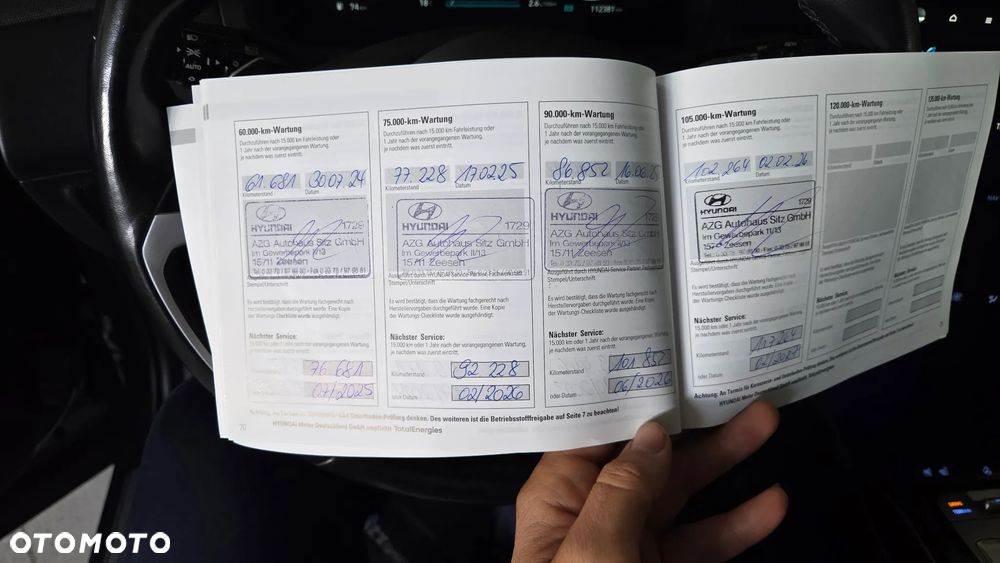 94 km
18°
112381
AUTO
60.000-km-Wartung
Durchzuführen nach 15.000 km Fahrleistung oder
1 Jahr nach der vorangegangenen Wartung,
je nachdem was zuerst eintritt.
61.681 30.07.24
Kilometerstand Datum
HYUNDAI 1729
AZG Autohaus Sitz GmbH
Im Gewerbepark 11/13
15711 Zeesen
Stempel/Unterschrift
Es wird bestätigt, dass die Wartung fachgerecht nach
Herstellervorgaben durchgeführt wurde. Eine Kopie
der Wartungs-Checkliste wurde ausgehändigt.
Nächster Service:
15.000 km oder 1 Jahr nach der vorangegangenen Wartung,
je nachdem was zuerst eintritt.
Kilometerstand 76 681
oder Datum 07/2025
75.000-km-Wartung
Durchzuführen nach 15.000 km Fahrleistung oder
1 Jahr nach der vorangegangenen Wartung,
je nachdem was zuerst eintritt.
77.228 17.02.25
Kilometerstand Datum
HYUNDAI 1729
AZG Autohaus Sitz GmbH
Im Gewerbepark 11/13
15711 Zeesen
Ausgeführt durch HYUNDAI Service-Partner, Fachwerkstatt
Stempel/Unterschrift
Es wird bestätigt, dass die Wartung fachgerecht nach
Herstellervorgaben durchgeführt wurde. Eine Kopie
der Wartungs-Checkliste wurde ausgehändigt.
Nächster Service:
15.000 km oder 1 Jahr nach der vorangegangenen Wartung,
je nachdem was zuerst eintritt.
Kilometerstand 92 228
oder Datum 02/2026
90.000-km-Wartung
Durchzuführen nach 15.000 km Fahrleistung oder
1 Jahr nach der vorangegangenen Wartung,
je nachdem was zuerst eintritt.
86.852 16.06.25
Kilometerstand Datum
HYUNDAI 1729
AZG Autohaus Sitz GmbH
Im Gewerbepark 11/13
15711 Zeesen
Ausgeführt durch HYUNDAI Service-Partner, Fachwerkstatt
Stempel/Unterschrift
Es wird bestätigt, dass die Wartung fachgerecht nach
Herstellervorgaben durchgeführt wurde. Eine Kopie
der Wartungs-Checkliste wurde ausgehändigt.
Nächster Service:
15.000 km oder 1 Jahr nach der vorangegangenen Wartung,
je nachdem was zuerst eintritt.
Kilometerstand 101 852
oder Datum 06/2026
Achtung: An Termin für Karosserie- und Unterboden-Prüfung denken. Des weiteren ist die Betriebsstofffreigabe auf Seite 7 zu beachten!
70 HYUNDAI Motor Deutschland GmbH empfiehlt TotalEnergies
105.000-km-Wartung
Durchzuführen nach 15.000 km Fahrleistung oder
1 Jahr nach der vorangegangenen Wartung,
je nachdem was zuerst eintritt.
102.264 02.02.26
Kilometerstand Datum
HYUNDAI 1729
AZG Autohaus Sitz GmbH
Im Gewerbepark 11/13
15711 Zeesen
Stempel/Unterschrift
Es wird bestätigt, dass die Wartung fachgerecht nach
Herstellervorgaben durchgeführt wurde. Eine Kopie
der Wartungs-Checkliste wurde ausgehändigt.
Nächster Service:
15.000 km oder 1 Jahr nach der vorangegangenen Wartung,
je nachdem was zuerst eintritt.
Kilometerstand 117.264
oder Datum 02/2027
120.000-km-Wartung
135.000-km-Wartung
Nächster Service:
Nächster Service:
OTOMOTO